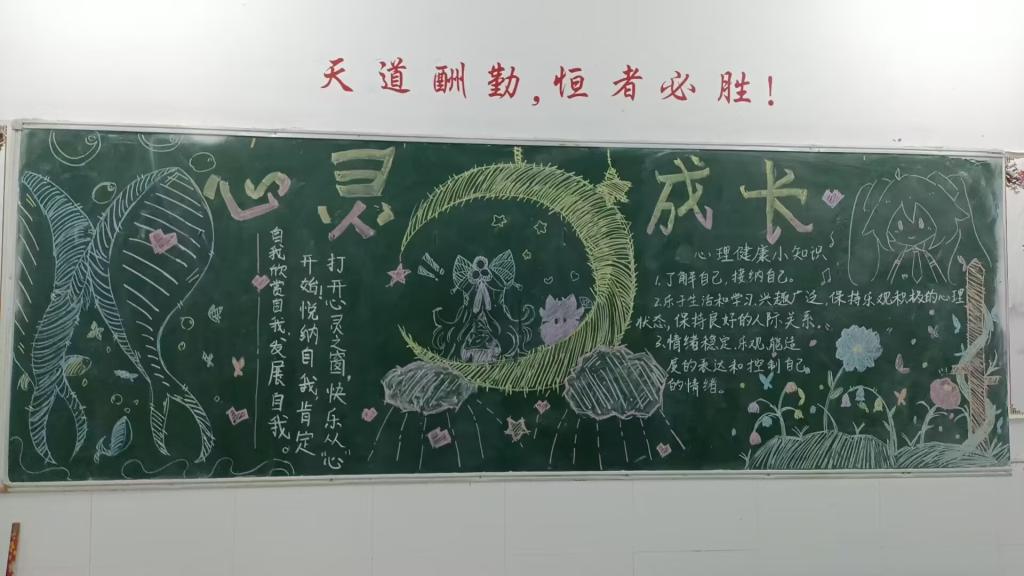 天道酬勤，恒者必胜！
心灵
成长
打开心灵之窗，快乐从“心”
开始，悦纳自我，肯定
自我，欣赏自我，发展自我。
心理健康小知识
1.了解自己，接纳自己。
2.乐于生活和学习，兴趣广泛，保持乐观积极的心理
状态，保持良好的人际关系。
3.情绪稳定、乐观，能适
度的表达和控制自己
的情绪。